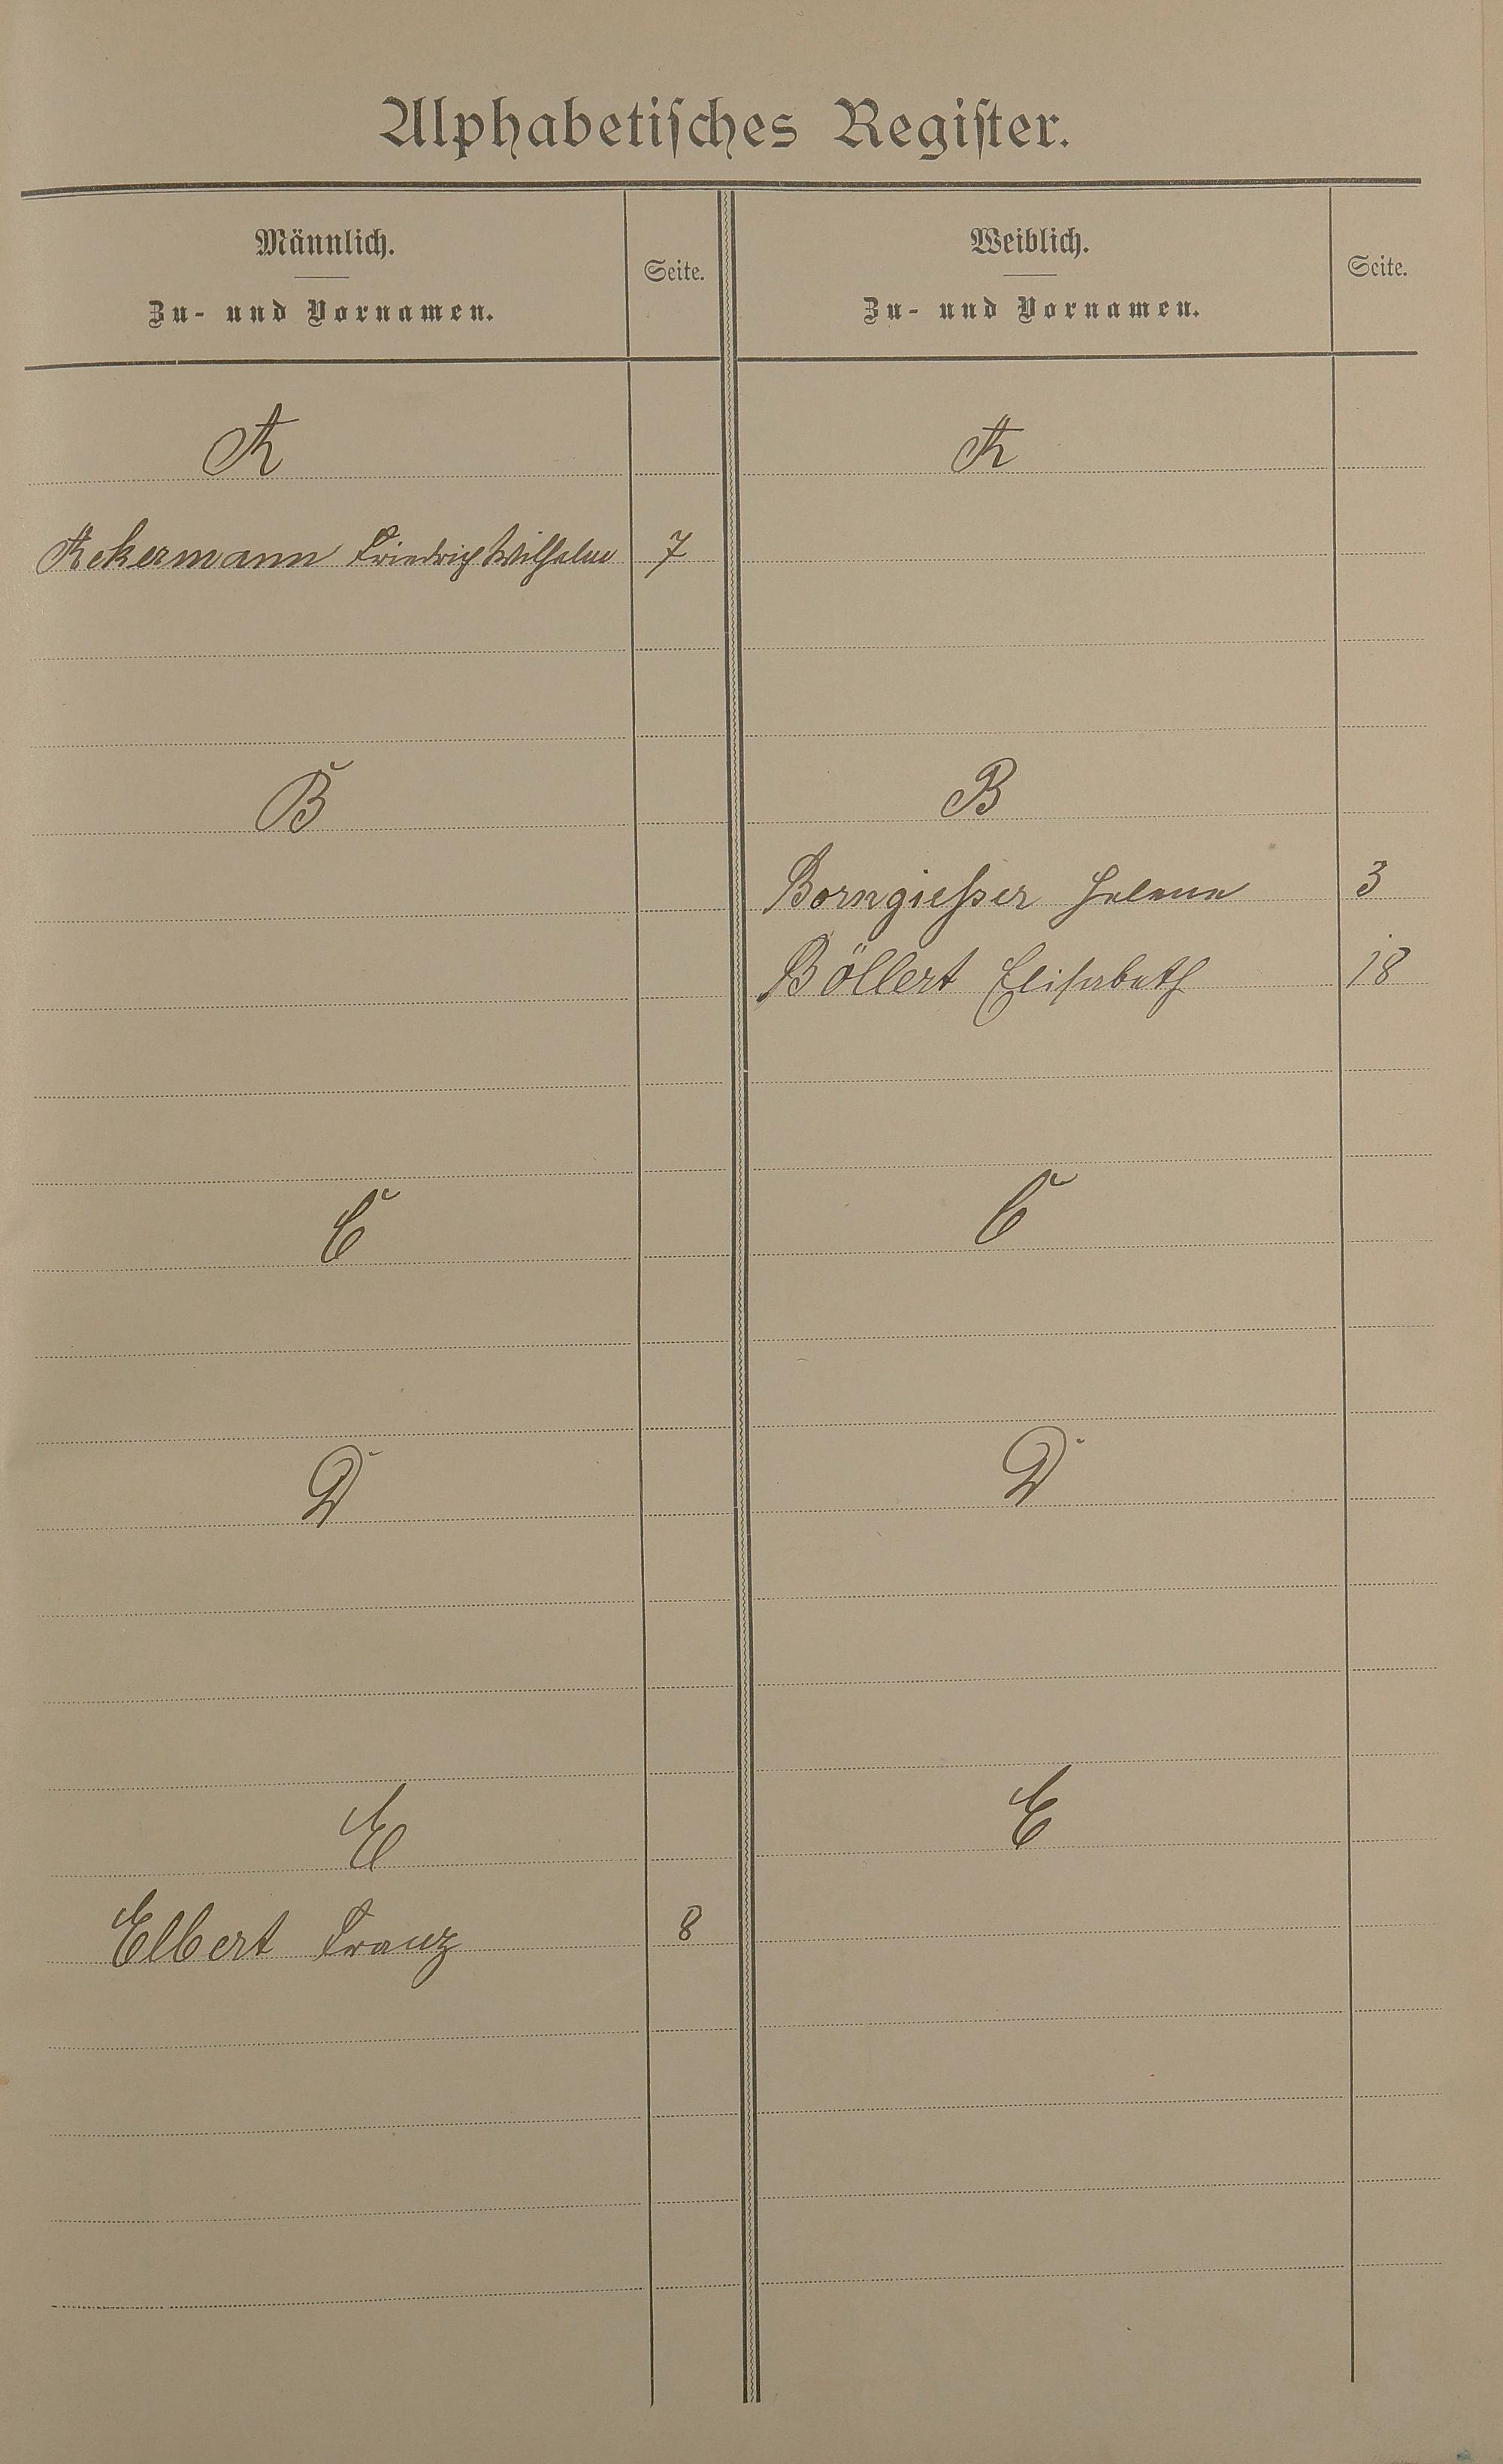 Alphabetisches Register.
Männlich.
Zu- und Vornamen.
Seite.
Weiblich.
Zu- und Vornamen.
Seite.
A
A
Ackermann Friedrich Wilhelm 7
B
B
Borngießer Helene 3
Böllert Elisabeth 18
C
C
D
D
E
E
Elbert Franz 8